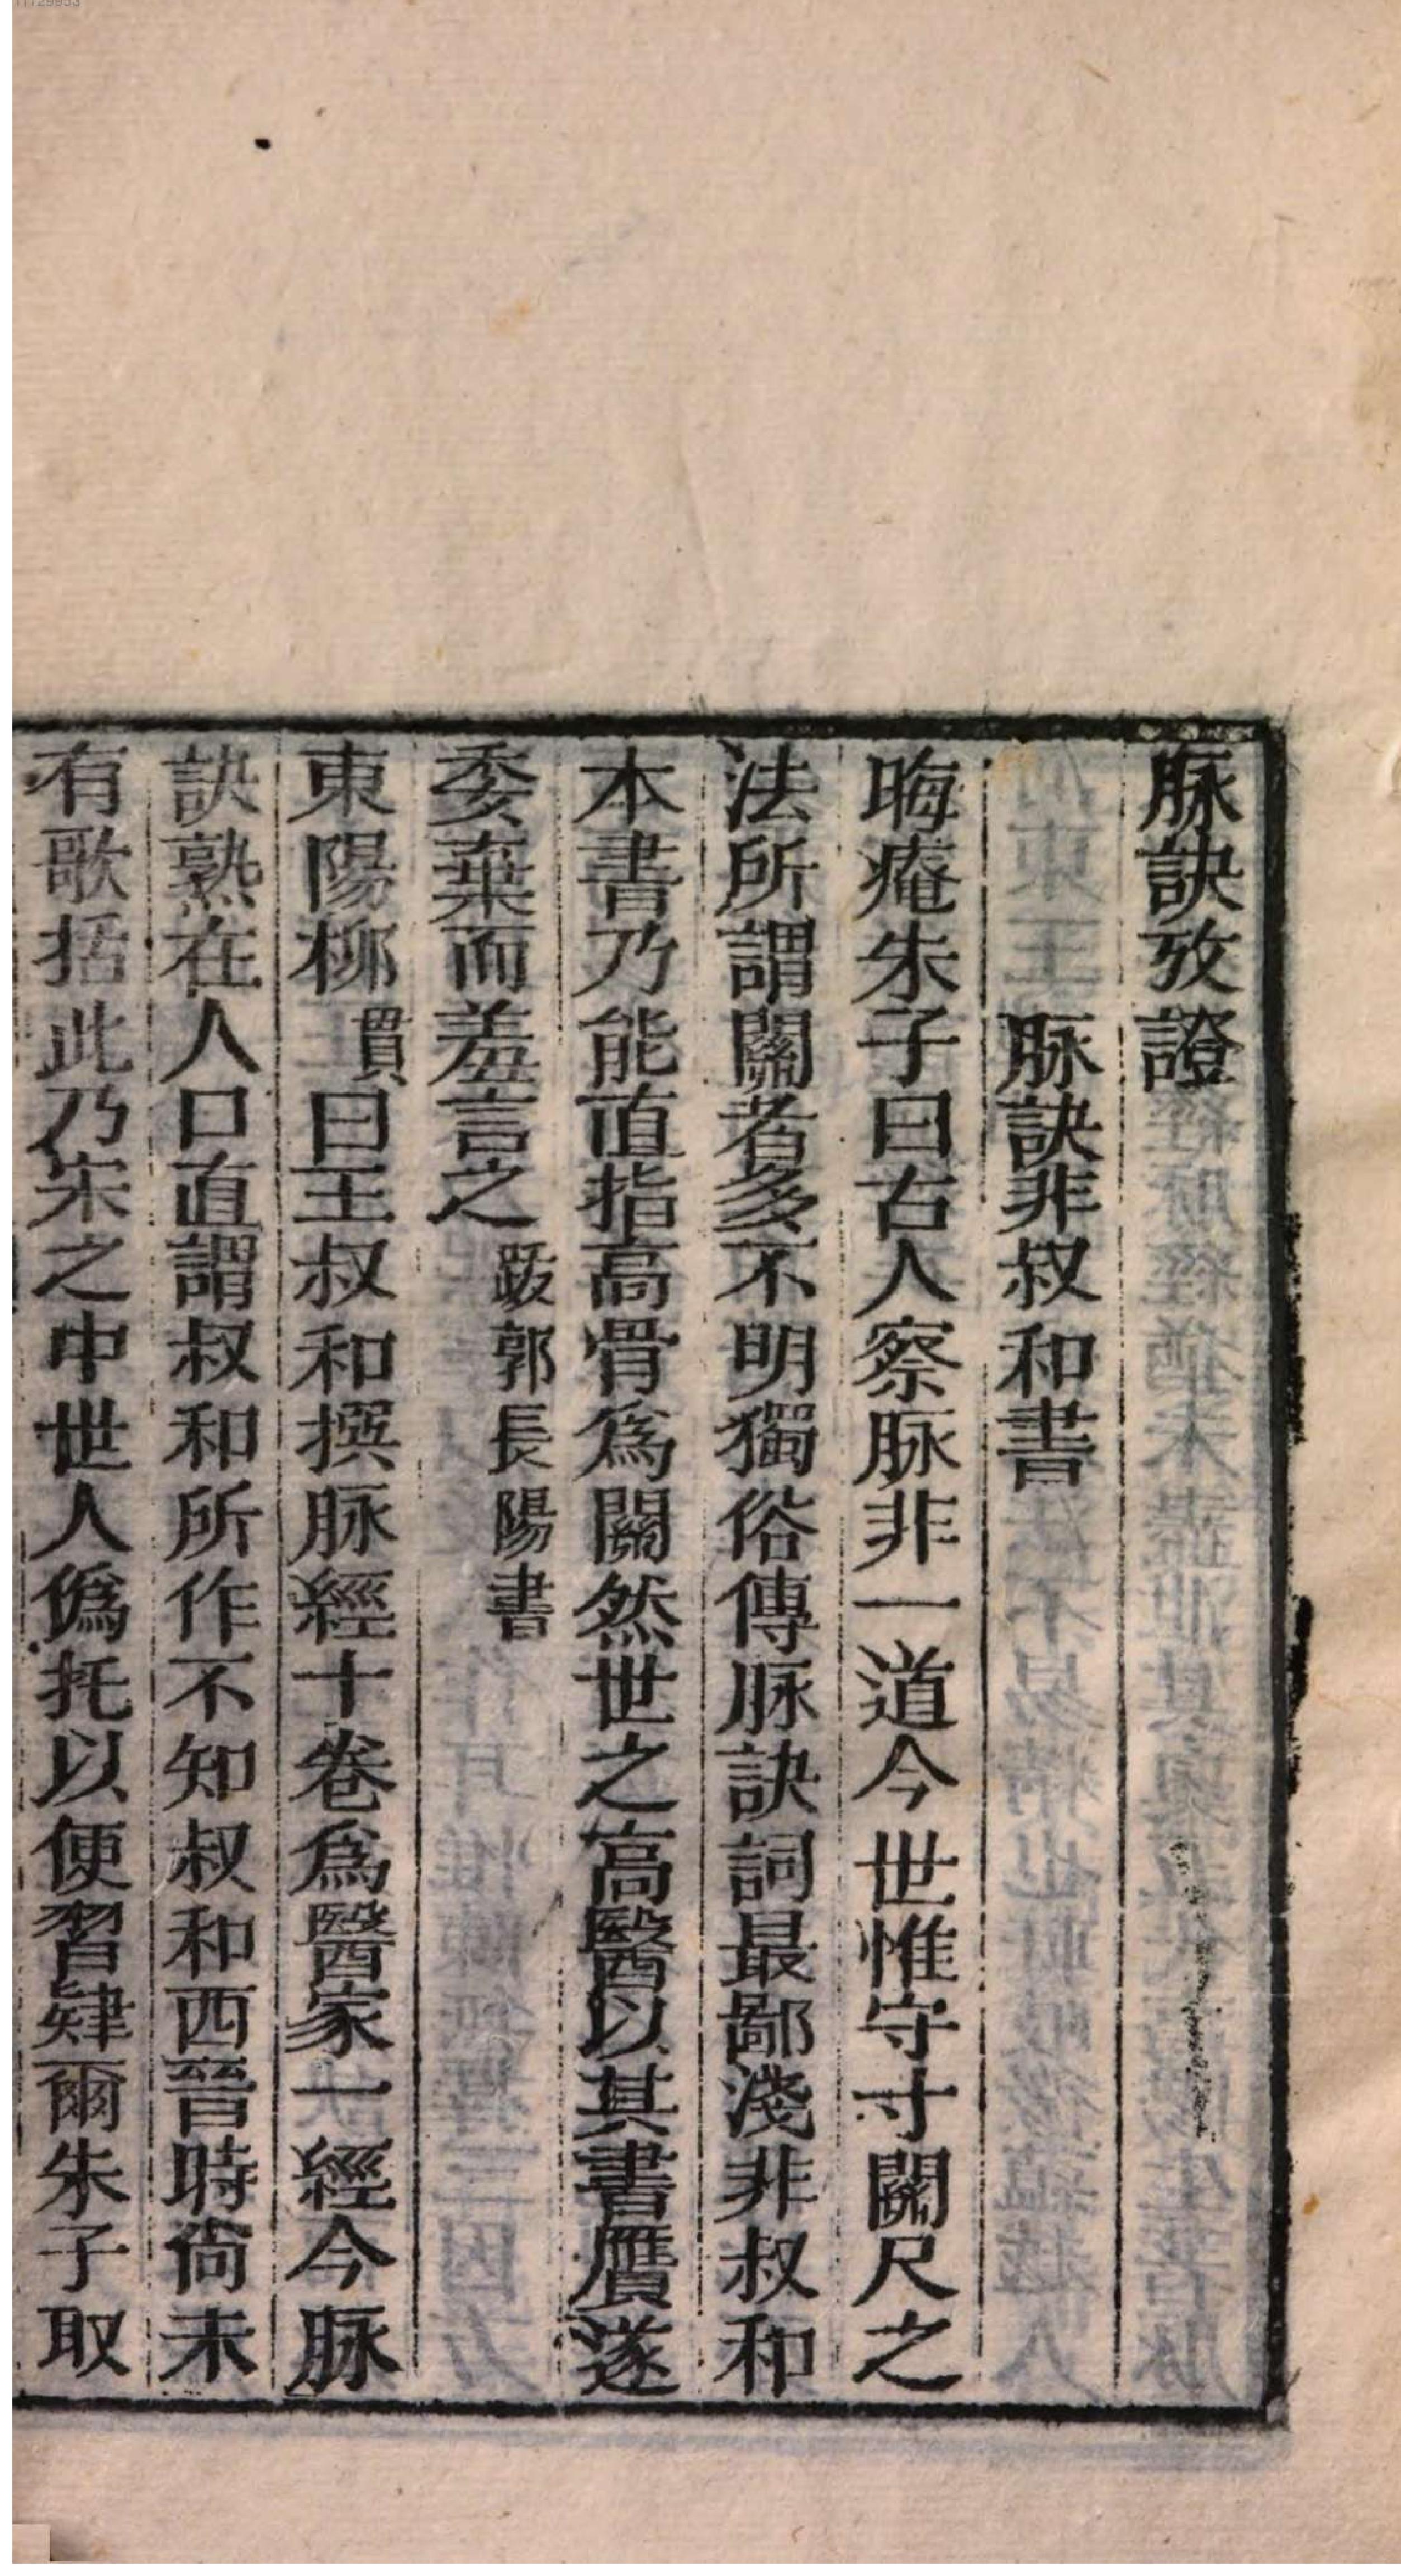 脉訣攷證
脉訣非叔和書
晦庵朱子曰古人察脉非一道今世惟守寸關尺之
法所謂關者多不明獨俗傳脉訣詞最鄙淺非叔和
本書乃能直指高骨爲關然世之高醫以其書贗遂
委棄而羞言之 跋郭長陽書
東陽柳貫曰王叔和撰脉經十卷爲醫家一經今脉
訣熟在人口直謂叔和所作不知叔和西晉時尙未
有歌括此乃宋之中世人僞托以便習肄爾朱子取